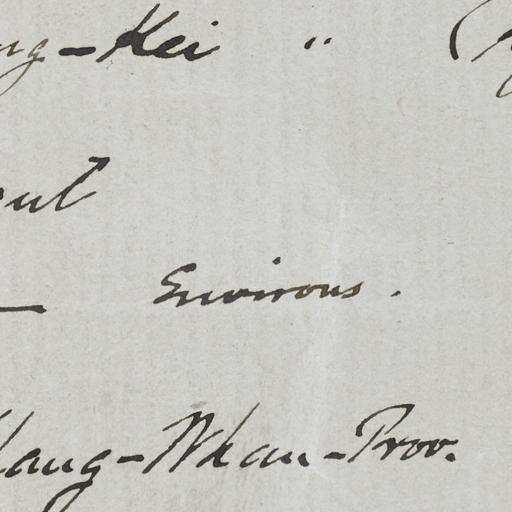 ng-Kei "
out
— Environs.
Hang-Whan-Prov.